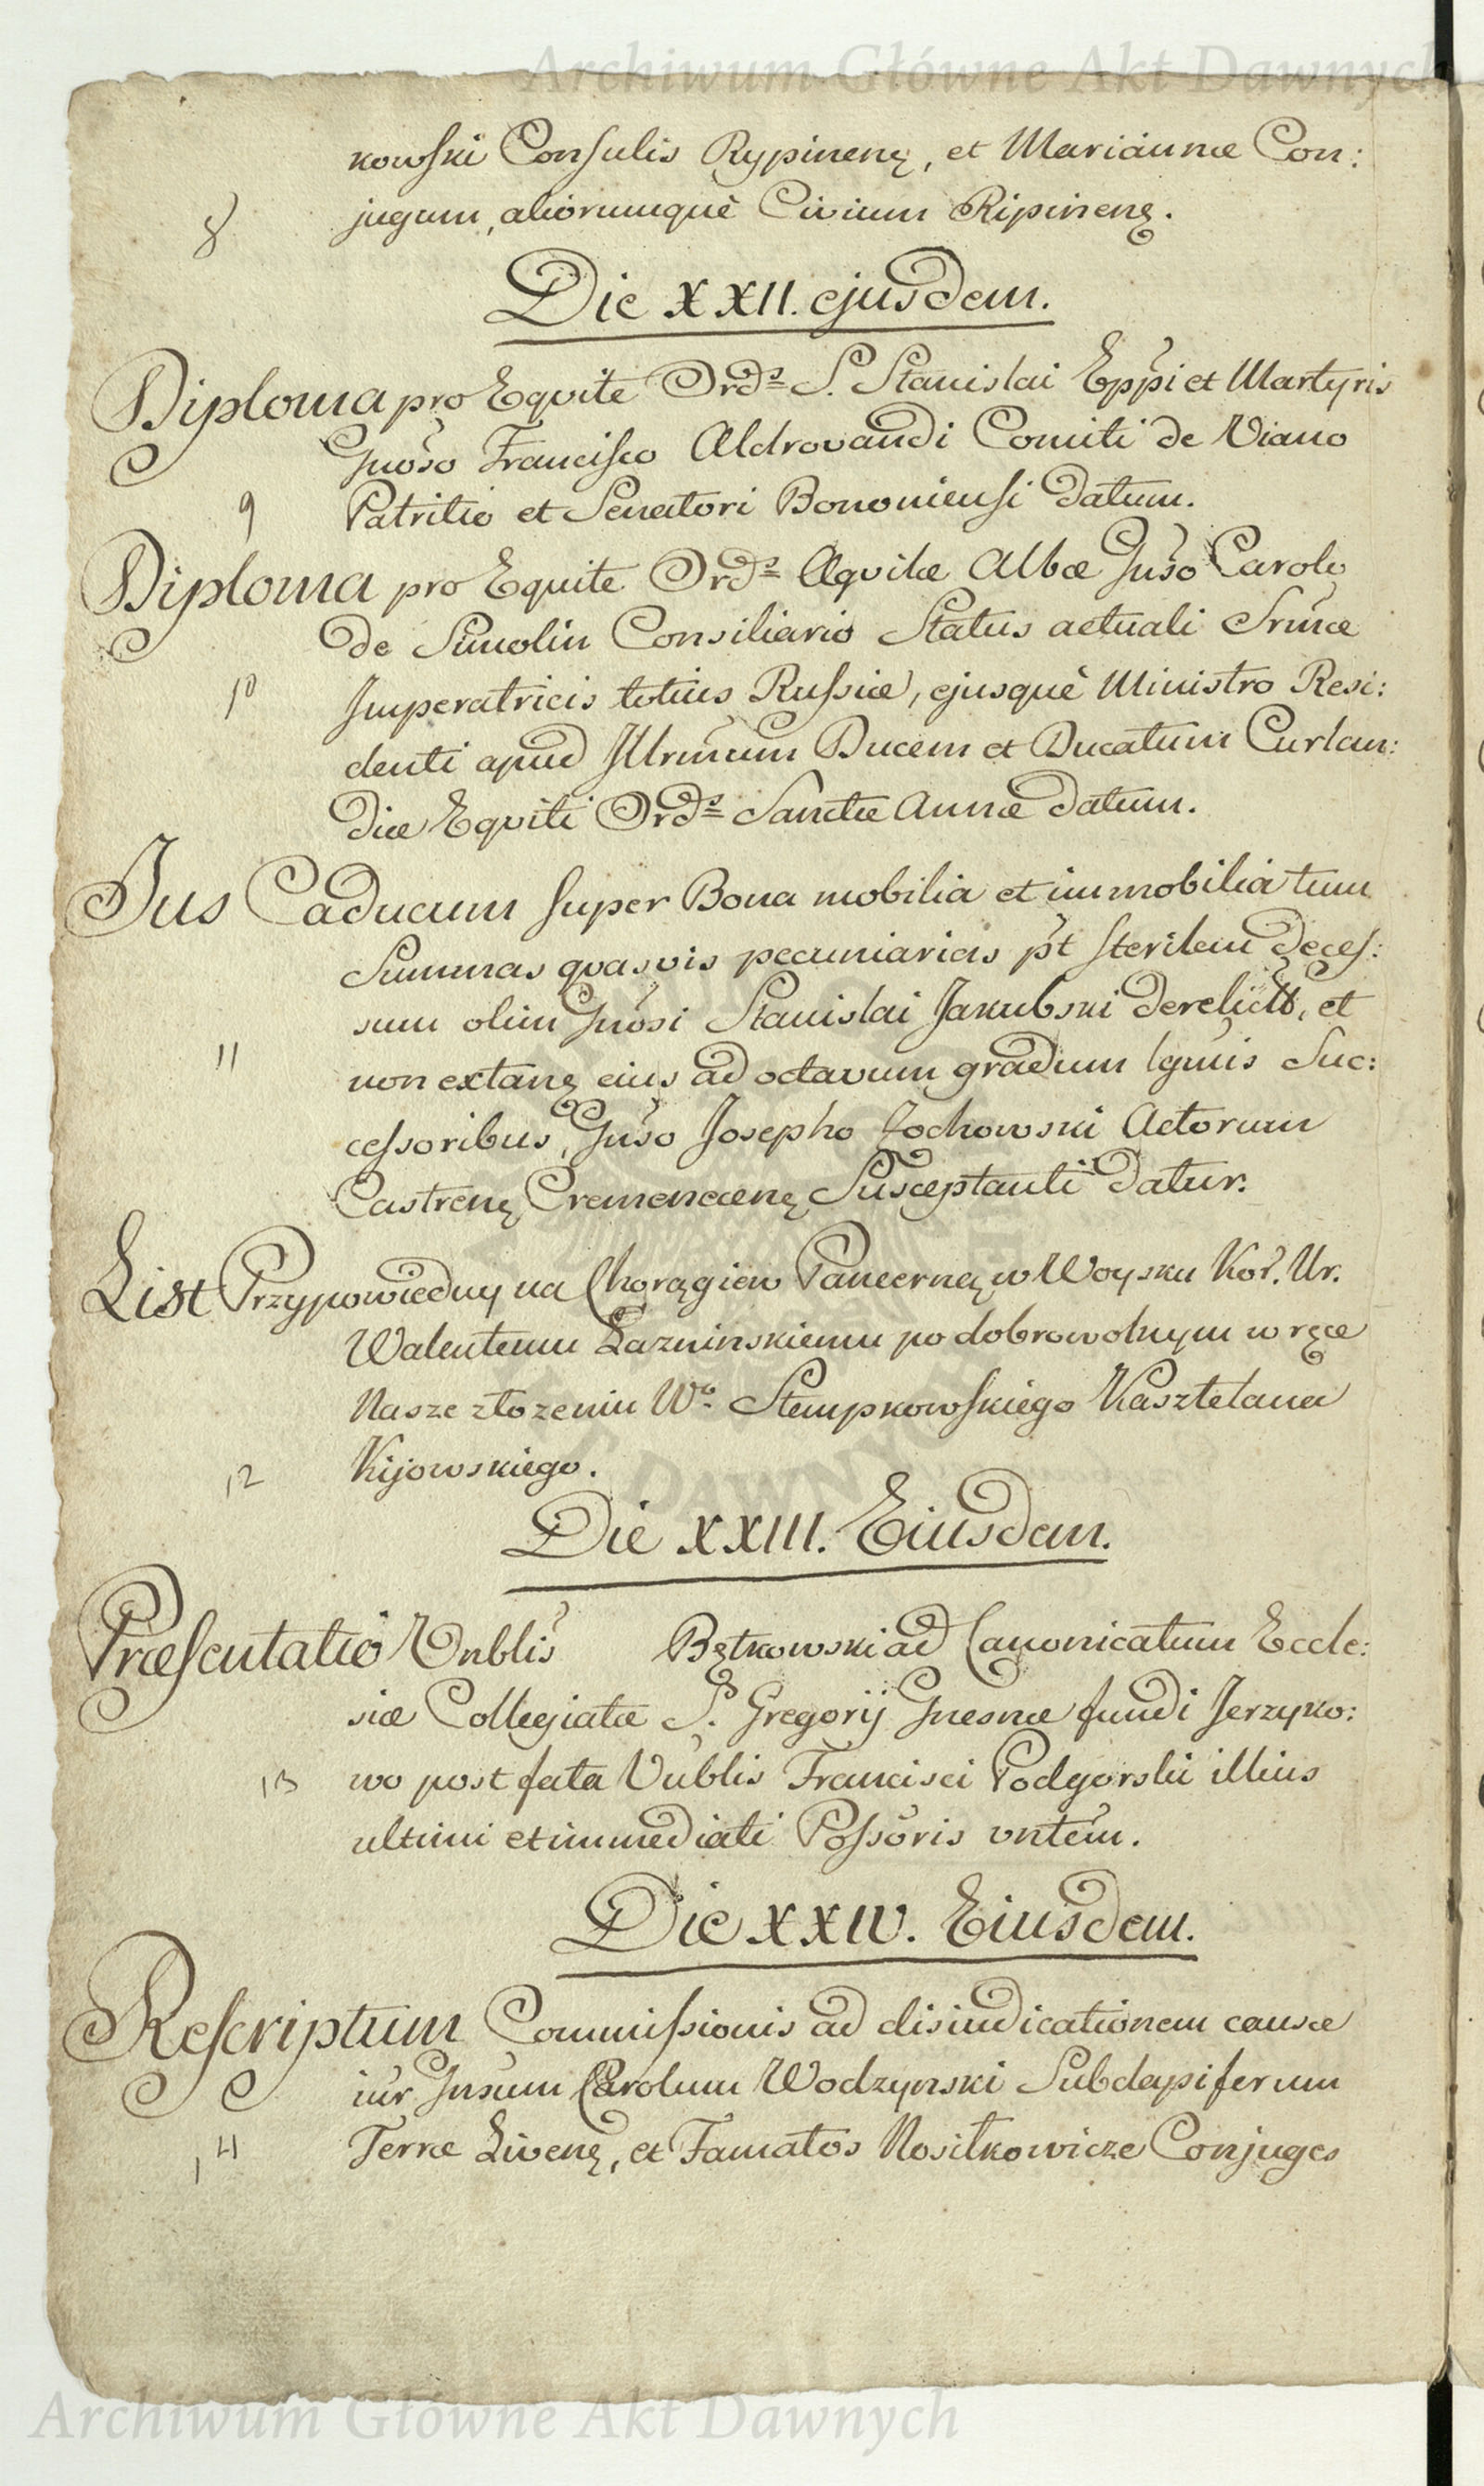 Archiwum Główne Akt Dawnych
kowski Consulis Rypinenę, et Mariannæ Con:
8 jugum, aliorumquè Civium Ripinenę.
Die XXII. ejusdem.
Diploma pro Equite Ord̳s S. Stanislai Eppi et Martyris
Gnoso Francisco Aldrovandi Comiti de Viano
9 Patritio et Senatori Bononiensi datum.
Diploma pro Equite Ord̳s Aquilæ Albæ Gnso Carolo
de Simolin Consiliario Status actuali Srmæ
10 Imperatricis totius Russiæ, ejusquè Ministro Resi:
denti apud Illrmum Ducem et Ducatum Curlan:
diæ Equiti Ord̳s Sanctæ Annæ datum.
Jus Caducum super Bona mobilia et immobilia tum
Summas quasvis pecuniarias pt sterilem deces:
sum olim Gnosi Stanislai Jakubski derelicta, et
11 non extanę eius ad octavum gradum lgmis Suc:
cessoribus, Gnso Josepho Zochowski Actorum
Castrenę Cremenecenę Susceptanti datur.
List Przypowiedny na Chorągiew Pancerną w Woysku Kor. Ur.
Walentemu Łazninskiemu po dobrowolnym w ręce
Nasze złozeniu Wo. Stempkowskiego Kasztelana
12 Kijowskiego.
Die XXIII. Eiusdem.
Præsentatio Vnblis Bątkowski ad Canonicatum Eccle:
siæ Collegiatæ S. Gregorij Gnesnæ fundi Jerzyko:
13 wo post fata Vnblis Francisci Podgorski illius
ultimi et immediati Possoris vntem.
Die XXIV. Eiusdem.
Rescriptum Commissionis ad disiudicationem causæ
inr Gnsum Carolum Wodzynski Subdapiferum
14 Terræ Livenę, et Famatos Nosilkowicze Conjuges
Archiwum Główne Akt Dawnych